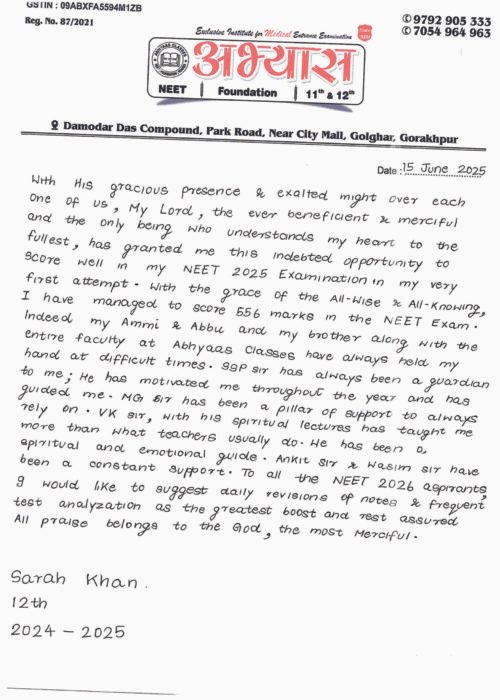 GSTIN : 09ABXFA5594M1ZB
Reg. No. 87/2021
✆ 9792 905 333
✆ 7054 964 963
Exclusive Institute for Medical Entrance Examination
अभ्यास
NEET | Foundation | 11th & 12th
Damodar Das Compound, Park Road, Near City Mall, Golghar, Gorakhpur
Date : 15 June 2025
With His gracious presence & exalted might over each
one of us, My Lord, the ever beneficient & merciful
and the only being who understands my heart to the
fullest, has granted me this indebted opportunity to
score well in my NEET 2025 Examination in my very
first attempt. With the grace of the All-Wise & All-Knowing,
I have managed to score 556 marks in the NEET Exam.
Indeed my Ammi & Abbu and my brother along with the
entire faculty at Abhyaas Classes have always held my
hand at difficult times. SSP Sir has always been a guardian
to me; He has motivated me throughout the year and has
guided me. MG Sir has been a pillar of support to always
rely on. VK Sir, with his spiritual lectures has taught me
more than what teachers usually do. He has been a
spiritual and emotional guide. Ankit Sir & Wasim Sir have
been a constant support. To all the NEET 2026 aspirants,
I would like to suggest daily revisions of notes & frequent
test analyzation as the greatest boost and rest assured
All praise belongs to the God, the most Merciful.
Sarah Khan.
12th
2024 - 2025